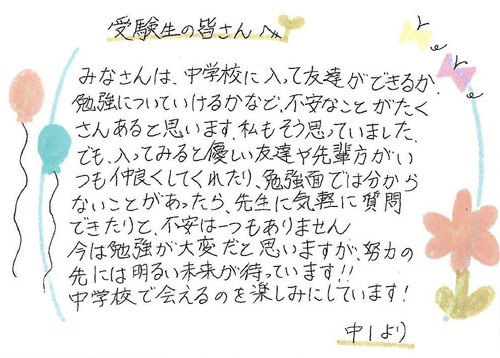 受験生の皆さんへ
みなさんは、中学校に入って友達ができるか、
勉強についていけるかなど、不安なことがたく
さんあると思います。私もそう思っていました。
でも、入ってみると優しい友達や先輩方がい
つも仲良くしてくれたり、勉強面では分から
ないことがあったら、先生に気軽に質問
できたりと、不安は一つもありません
今は勉強が大変だと思いますが、努力の
先には明るい未来が待っています!!
中学校で会えるのを楽しみにしています!
中1より